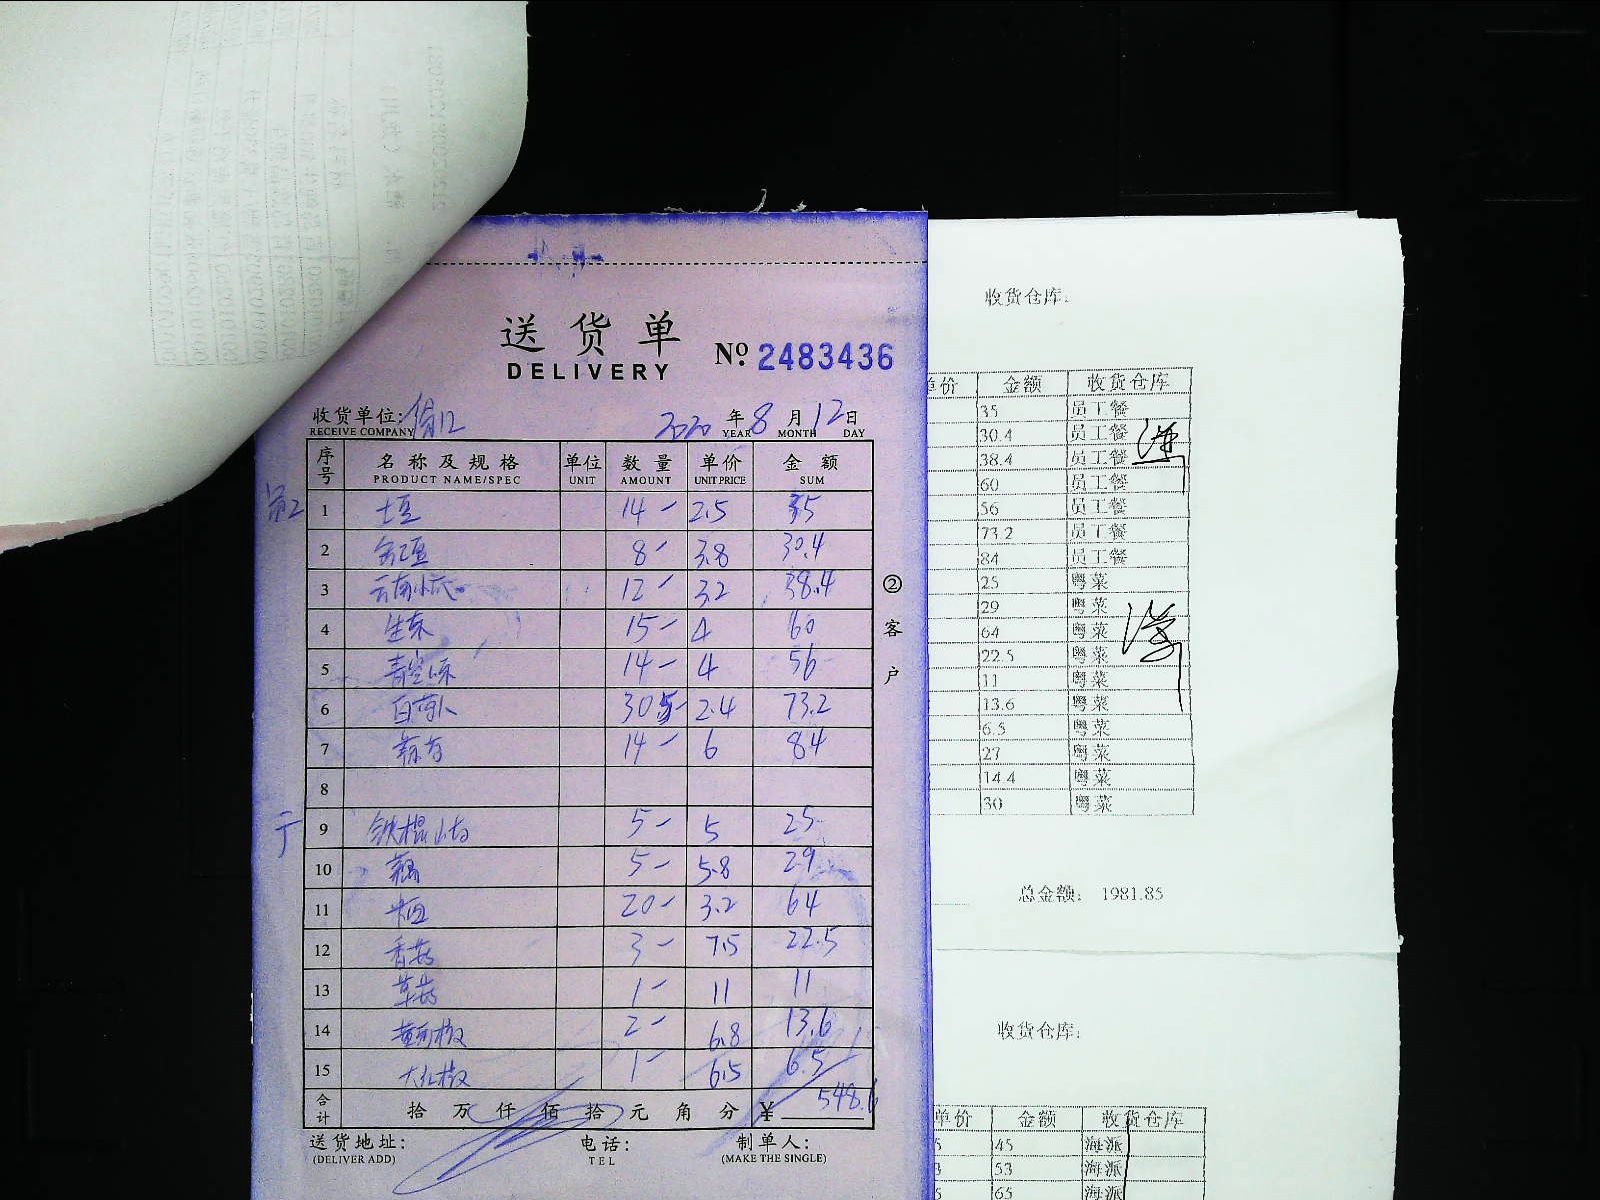 送货单
DELIVERY
№ 2483436
收货单位:
RECEIVE COMPANY
2020 年 8 月 12 日
YEAR MONTH DAY
序号 名称及规格 单位 数量 单价 金额
PRODUCT NAME/SPEC UNIT AMOUNT UNIT PRICE SUM
1 土豆 14 - 2.5 35
2 8 - 3.8 30.4
3 云南小瓜 12 - 3.2 38.4
4 生菜 15 - 4 60
5 14 - 4 56
6 30.5 - 2.4 73.2
7 14 - 6 84
8
9 铁棍山药 5 - 5 25
10 藕 5 - 5.8 29
11 20 - 3.2 64
12 香菇 3 - 7.5 22.5
13 草菇 1 - 11 11
14 黄彩椒 2 - 6.8 13.6
15 大红椒 1 - 6.5 6.5
合计 拾 万 仟 佰 拾 元 角 分 ¥ 548.6
送货地址: 电话: 制单人:
(DELIVER ADD) TEL (MAKE THE SINGLE)
②客户
收货仓库:
单价 金额 收货仓库
35 员工餐
30.4 员工餐
38.4 员工餐
60 员工餐
56 员工餐
73.2 员工餐
84 员工餐
25 粤菜
29 粤菜
64 粤菜
22.5 粤菜
11 粤菜
13.6 粤菜
6.5 粤菜
27 粤菜
14.4 粤菜
30 粤菜
总金额: 1981.85
收货仓库:
单价 金额 收货仓库
45 海派
53 海派
65 海派